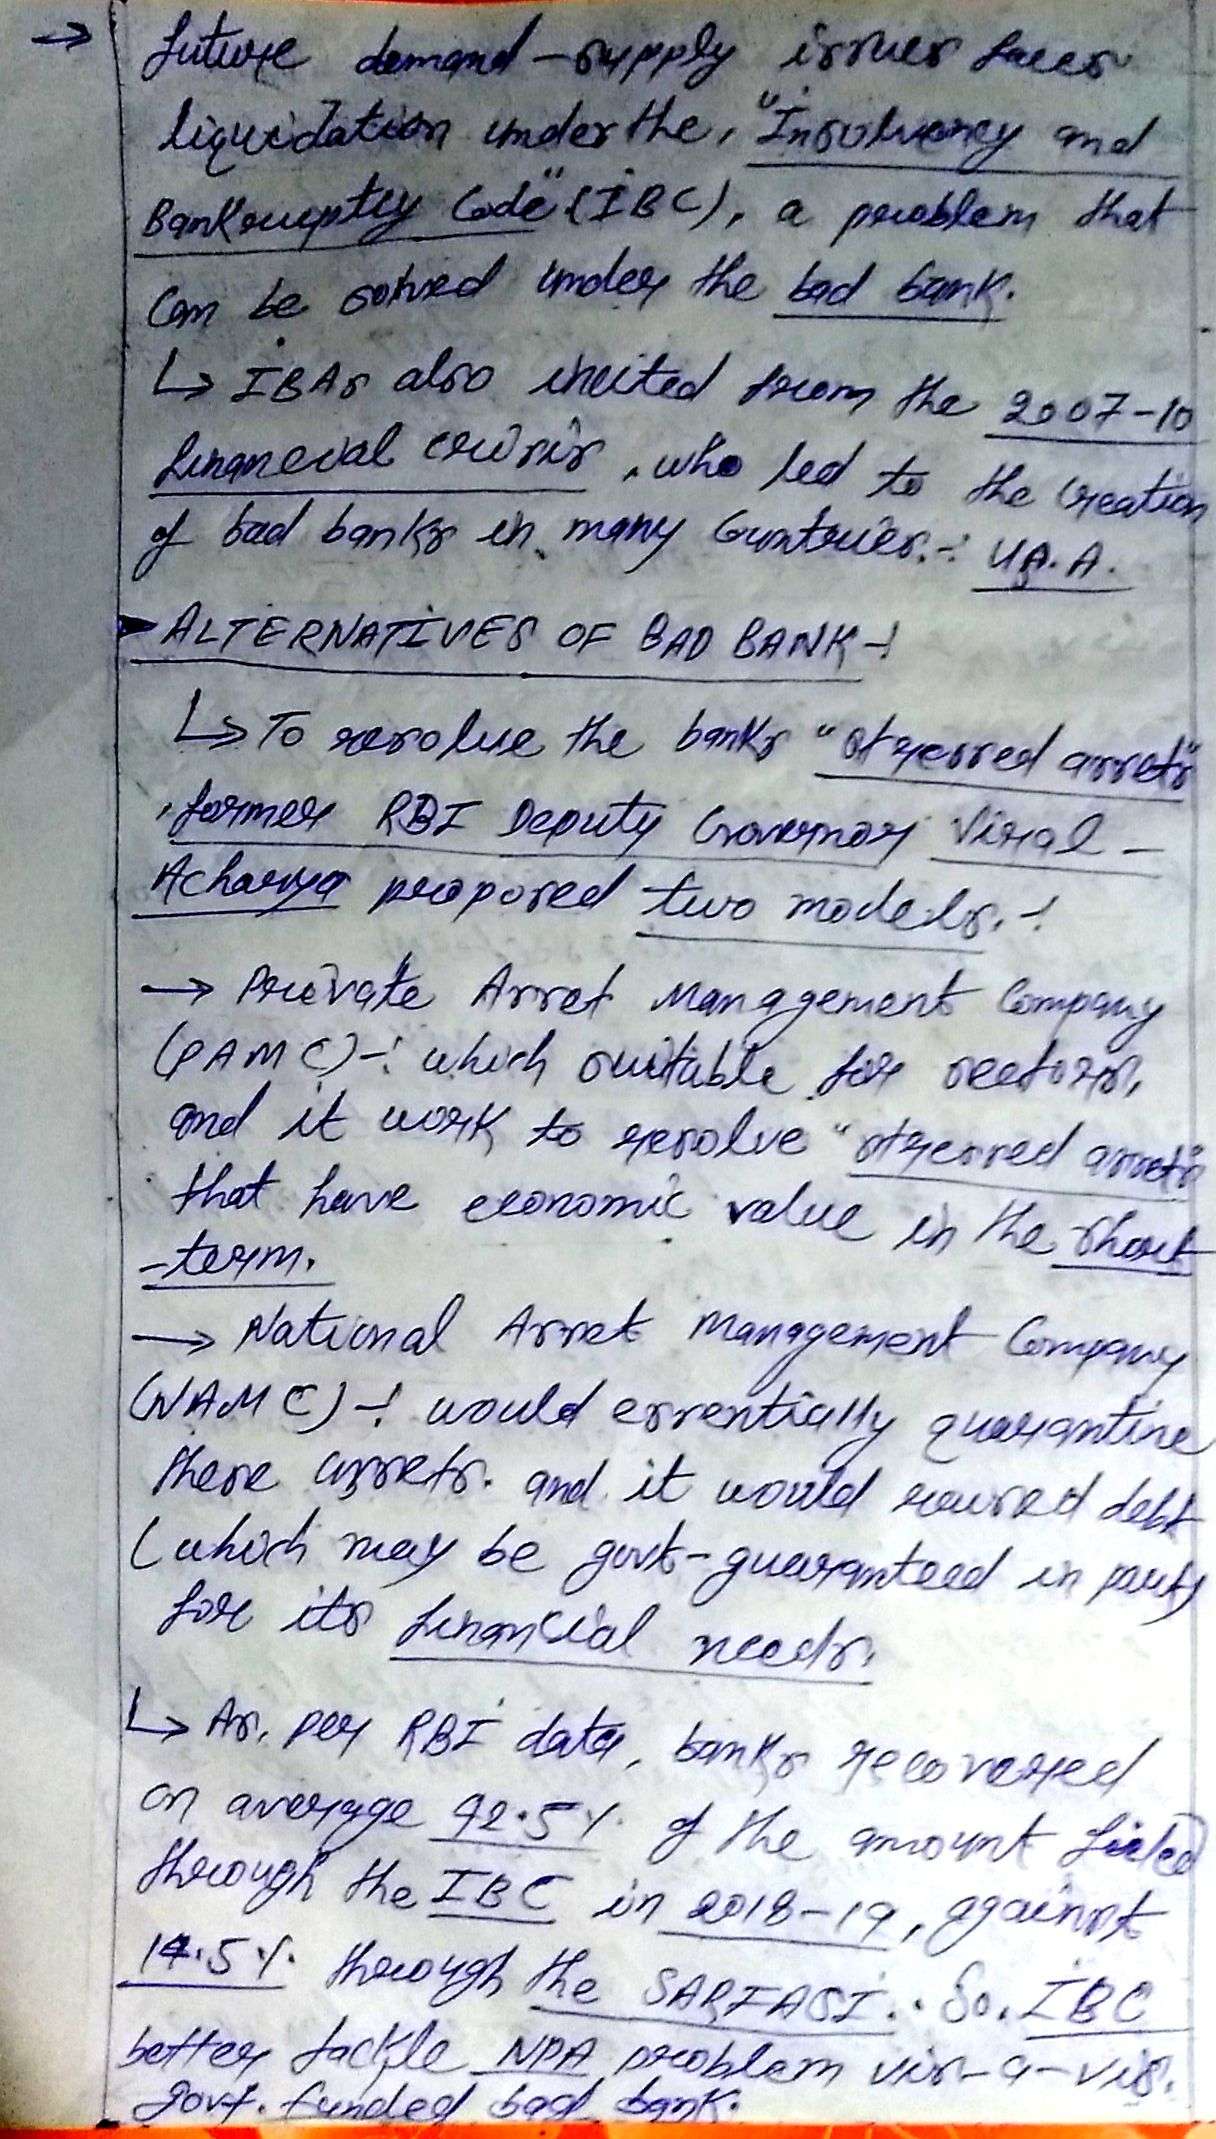 → future demand-supply issues faces
liquidation under the, "Insolvency and
Bankruptcy Code" (IBC), a problem that
can be solved under the bad bank.
↳ IBAs also incited from the 2007-10
financial crisis, who led to the creation
of bad banks in many Countries.-: U.S.A.
ALTERNATIVES OF BAD BANK-:
↳ To resolve the banks "stressed assets"
, former RBI Deputy Governor Viral-
Acharya proposed two models.-:
→ Private Asset Management Company
(PAMC)-: which suitable for sectors,
and it work to resolve "stressed assets"
that have economic value in the short
-term.
→ National Asset Management Company
(NAMC)-: would essentially quarantine
these assets. and it would raised debt
(which may be govt-guaranteed in part)
for its financial needs.
↳ As, per RBI data, banks recovered
on average 42.5% of the amount filed
through the IBC in 2018-19, against
14.5% through the SARFASI.. So. IBC
better tackle NPA problem vis-a-vis.
govt. funded bad bank.